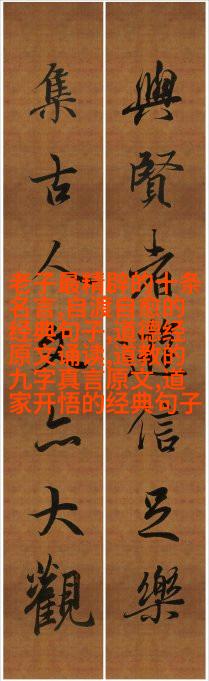 與賢者遊信足樂
集古人文亦大觀
老子最精辟的十条
名言,自渡自愈的
经典句子,道德经
原文诵读,道教的
九字真言原文,道
家开悟的经典句子